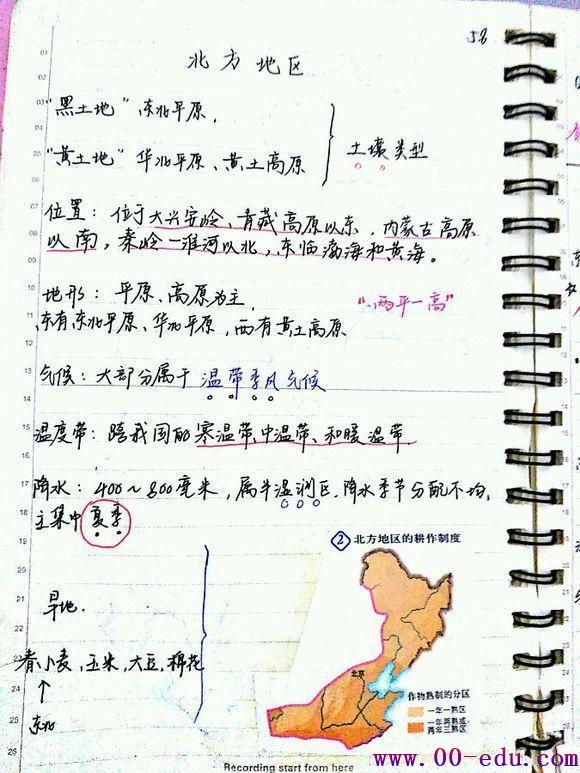 58
北方地区
"黑土地" 东北平原,
"黄土地" 华北平原、黄土高原
土壤类型
位置：位于大兴安岭、青藏高原以东，内蒙古高原
以南，秦岭—淮河以北，东临渤海和黄海。
地形：平原、高原为主,
东有东北平原、华北平原，西有黄土高原
"两平一高"
气候：大部分属于温带季风气候
温度带：跨我国的寒温带、中温带、和暖温带
降水：400~800毫米，属半湿润区，降水季节分配不均，
主集中夏季
② 北方地区的耕作制度
旱地.
春小麦，玉米，大豆，棉花
↑
东北
北京
作物熟制的分区
一年一熟区
一年两熟或
两年三熟区
www.00-edu.com
Recording start from here